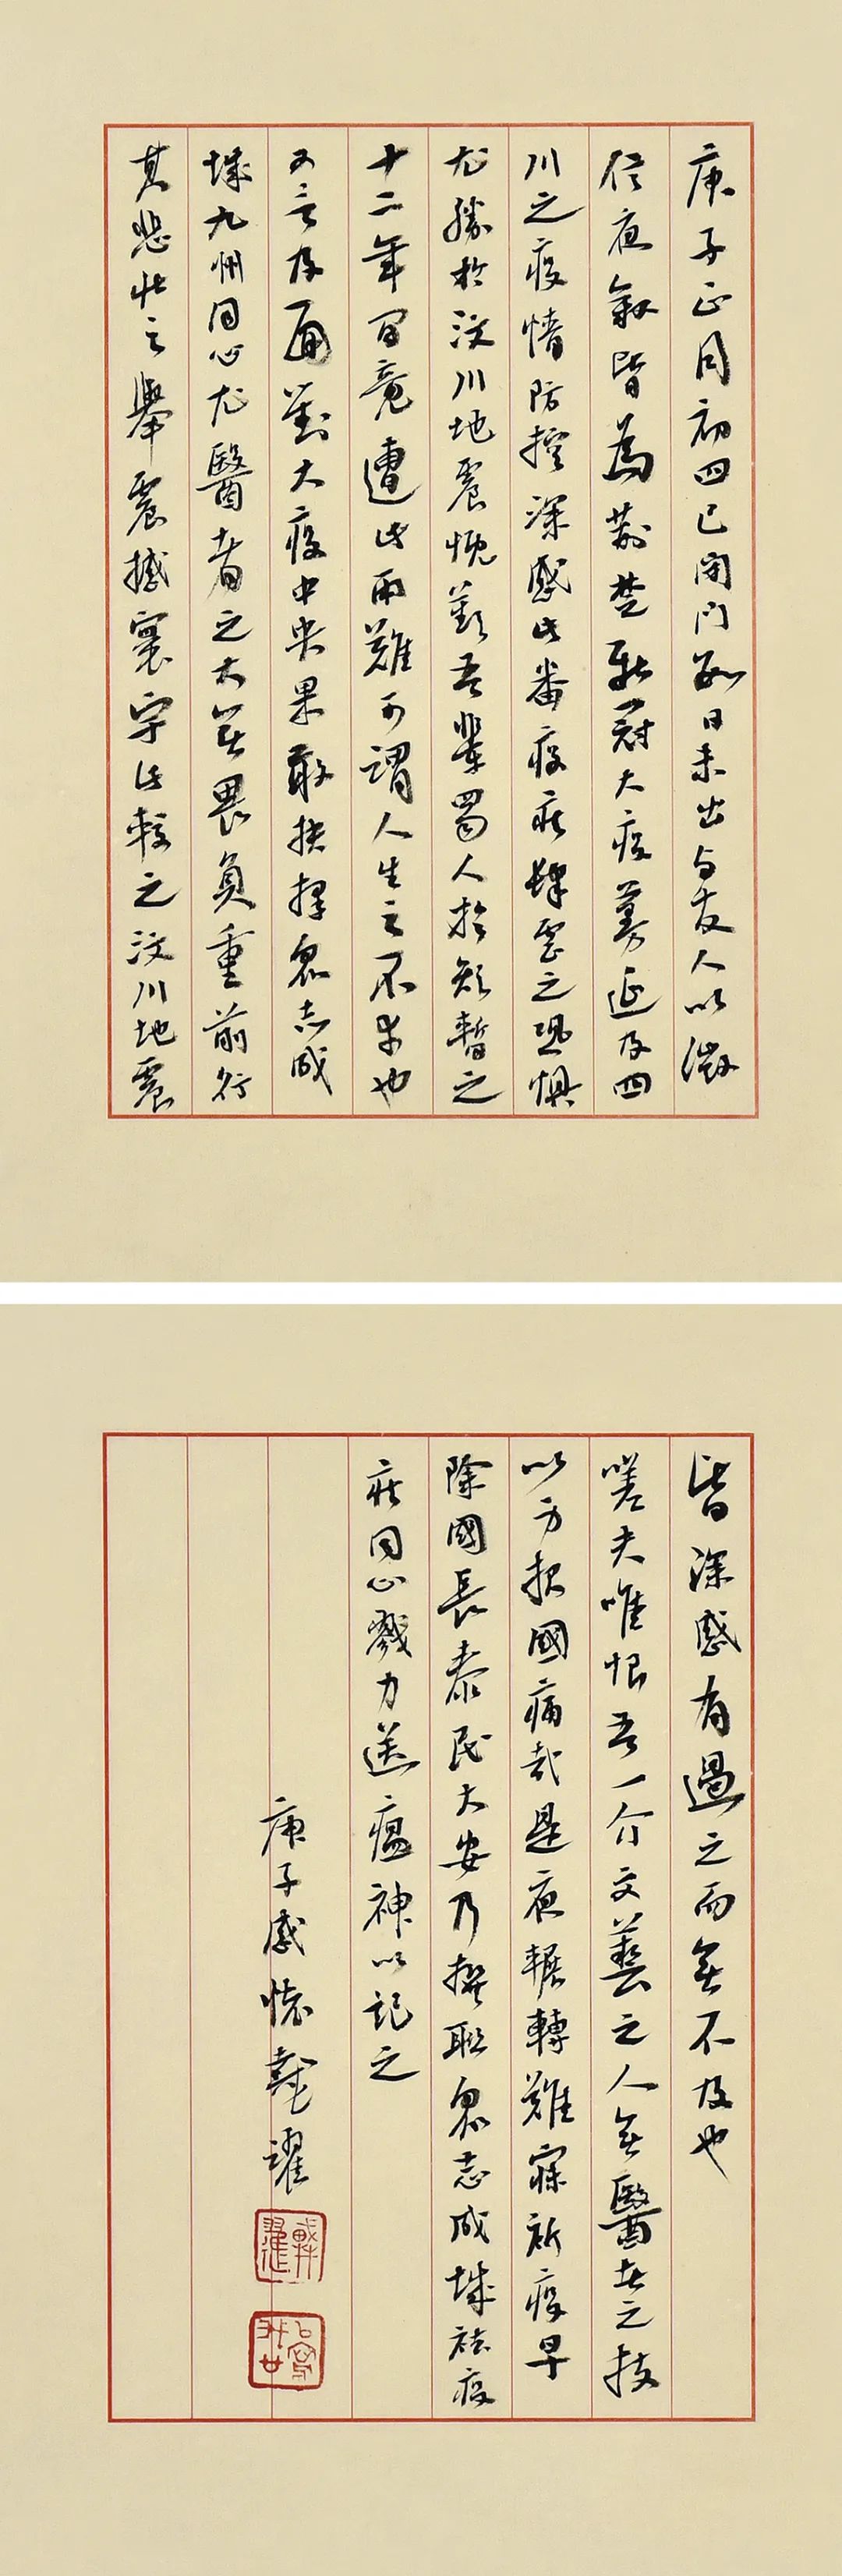 庚子正月初四已閉門數日未出與友人以微
信夜敘皆為荊楚新冠大疫蔓延及四
川之疫情防控深感此番疫症肆虐之恐懼
尤勝於汶川地震慨嘆吾輩蜀人於短暫之
十二年間竟遭此兩難可謂人生之不幸也
又言及面對大疫中央果敢抉擇眾志成
城九州同心尤醫者之大無畏負重前行
其悲壯之舉震撼寰宇比較之汶川地震
皆深感有過之而無不及也
嗟夫唯恨吾一介文藝之人無醫者之技
以方報國痛哉是夜輾轉難寐祈疫早
除國長泰民大安乃撰聯眾志成城祛疫
症同心戮力送瘟神以記之
庚子感懷戴躍